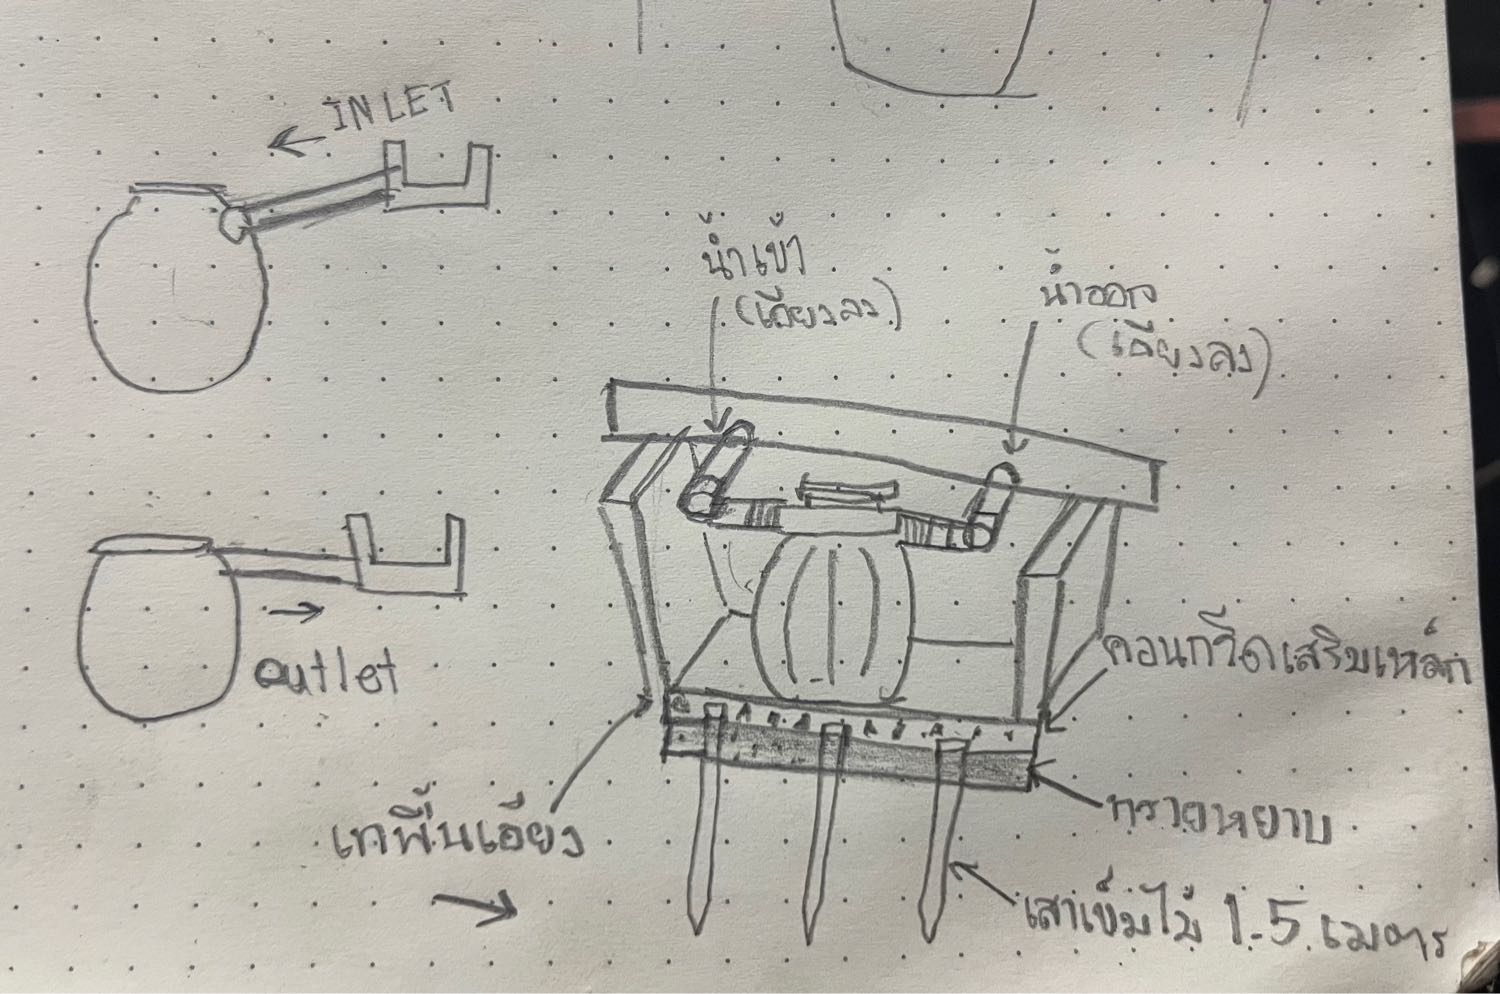 INLET
น้ำเข้า
(เอียงลง)
น้ำออก
(เอียงลง)
outlet
คอนกรีตเสริมเหล็ก
เทพื้นเอียง
ทรายหยาบ
เสาเข็มไม้ 1.5 เมตร